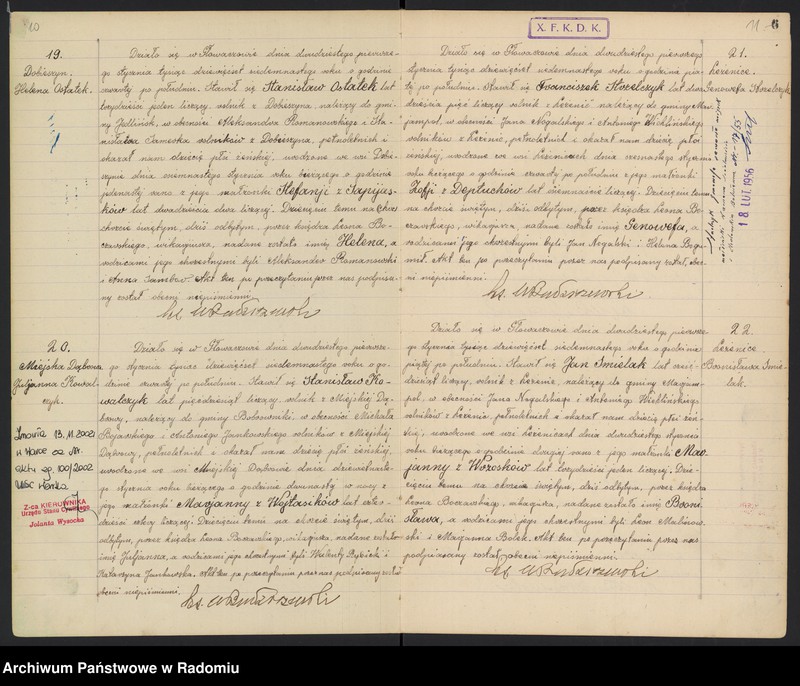 10
19.
Dobieszyn.
Helena Ostałek.
Działo się w Głowaczowie dnia dwudziestego pierwsze-
go stycznia tysiąc dziewięćset siedemnastego roku o godzinie
czwartej po południu. Stawił się Stanisław Ostałek lat
czterdzieści jeden liczący, rolnik z Dobieszyna, należący do gmi-
ny Jedlińsk, w obecności Aleksandra Romanowskiego i Sta-
nisława rolników z Dobieszyna, pełnoletnich i
okazał nam dziecię płci żeńskiej, urodzone we wsi Dobie-
szynie dnia osiemnastego stycznia roku bieżącego o godzinie
jedenastej rano z jego małżonki Stefanji z Sapijas-
ków lat dwadzieścia dwa liczącej. Dziecięciu temu na
chrzcie świętym, dziś odbytym, przez księdza Leona Bo-
czewskiego, wikarjusza, nadane zostało imię Helena, a
rodzicami jego chrzestnymi byli Aleksander Romanowski
i Anna Akt ten po przeczytaniu przez nas podpisa-
ny został obecni niepiśmienni.
ks.
20.
Miejska Dąbrowa
Juljanna Kowal-
czyk.
Działo się w Głowaczowie dnia dwudziestego pierwsze-
go stycznia tysiąc dziewięćset siedemnastego roku o go-
dzinie czwartej po południu. Stawił się Stanisław Ko-
walczyk lat pięćdziesiąt liczący, rolnik z Miejskiej Dą-
browy, należący do gminy Bobrowniki, w obecności Michała
Bojarskiego i Antoniego Jankowskiego rolników z Miejskiej
Dąbrowy, pełnoletnich i okazał nam dziecię płci żeńskiej,
urodzone we wsi Miejskiej Dąbrowie dnia dziewiętnaste-
go stycznia roku bieżącego o godzinie dwunastej w nocy z
jego małżonki Marjanny z Wojtasików lat czter-
dzieści cztery liczącej. Dziecięciu temu na chrzcie świętym, dziś
odbytym, przez księdza Leona Boczewskiego, wikarjusza, nadane zostało
imię Juljanna, a rodzicami jego chrzestnymi byli Walenty i
Katarzyna Jankowska. Akt ten po przeczytaniu przez nas podpisany został
obecni niepiśmienni.
ks.
Zmarła 13.11.2002r
w Warce
aktu zg. 100/2002
USC Warka
Z-ca KIEROWNIKA
Urzędu Stanu Cywilnego
Jolanta Wysocka
X. F. K. D. K.
11
6
21.
Lezenice.
Genowefa Strzelczyk.
Działo się w Głowaczowie dnia dwudziestego pierwszego
stycznia tysiąc dziewięćset siedemnastego roku o godzinie pią-
tej po południu. Stawił się Franciszek Strzelczyk lat dwa-
dzieścia pięć liczący rolnik z Lezenic należący do gminy Mar-
jampol, w obecności Jana Nogalskiego i Antoniego Wichlińskiego
rolników z Lezenic, pełnoletnich i okazał nam dziecię płci
żeńskiej, urodzone we wsi Lezenicach dnia szesnastego stycznia
roku bieżącego o godzinie czwartej po południu z jego małżonki
Zofji z Deptuchów lat osiemnaście liczącej. Dziecięciu temu
na chrzcie świętym, dziś odbytym, przez księdza Leona Bo-
czewskiego, wikarjusza, nadane zostało imię Genowefa, a
rodzicami jego chrzestnymi byli Jan Nogalski i Helena
Akt ten po przeczytaniu przez nas podpisany został, obec-
ni niepiśmienni.
ks.
18 LUT. 1956
22.
Lezenice.
Bronisława Śmie-
lak.
Działo się w Głowaczowie dnia dwudziestego pierwsze-
go stycznia tysiąc dziewięćset siedemnastego roku o godzinie
piątej po południu. Stawił się Jan Śmielak lat sześć-
dziesiąt liczący, rolnik z Lezenic, należący do gminy Marjam-
pol, w obecności Jana Nogalskiego i Antoniego Wichlińskiego
rolników z Lezenic pełnoletnich i okazał nam dziecię płci żeń-
skiej, urodzone we wsi Lezenicach dnia dwudziestego stycznia
roku bieżącego o godzinie drugiej rano z jego małżonki Mar-
janny z Worosków lat czterdzieści jeden liczącej. Dzie-
cięciu temu na chrzcie świętym, dziś odbytym, przez księdza
Leona Boczewskiego, wikarjusza, nadane zostało imię Broni-
sława, a rodzicami jego chrzestnymi byli Leon Malinow-
ski i Marjanna Bolek. Akt ten po przeczytaniu przez nas
podpisany został, obecni niepiśmienni.
ks.
Archiwum Państwowe w Radomiu